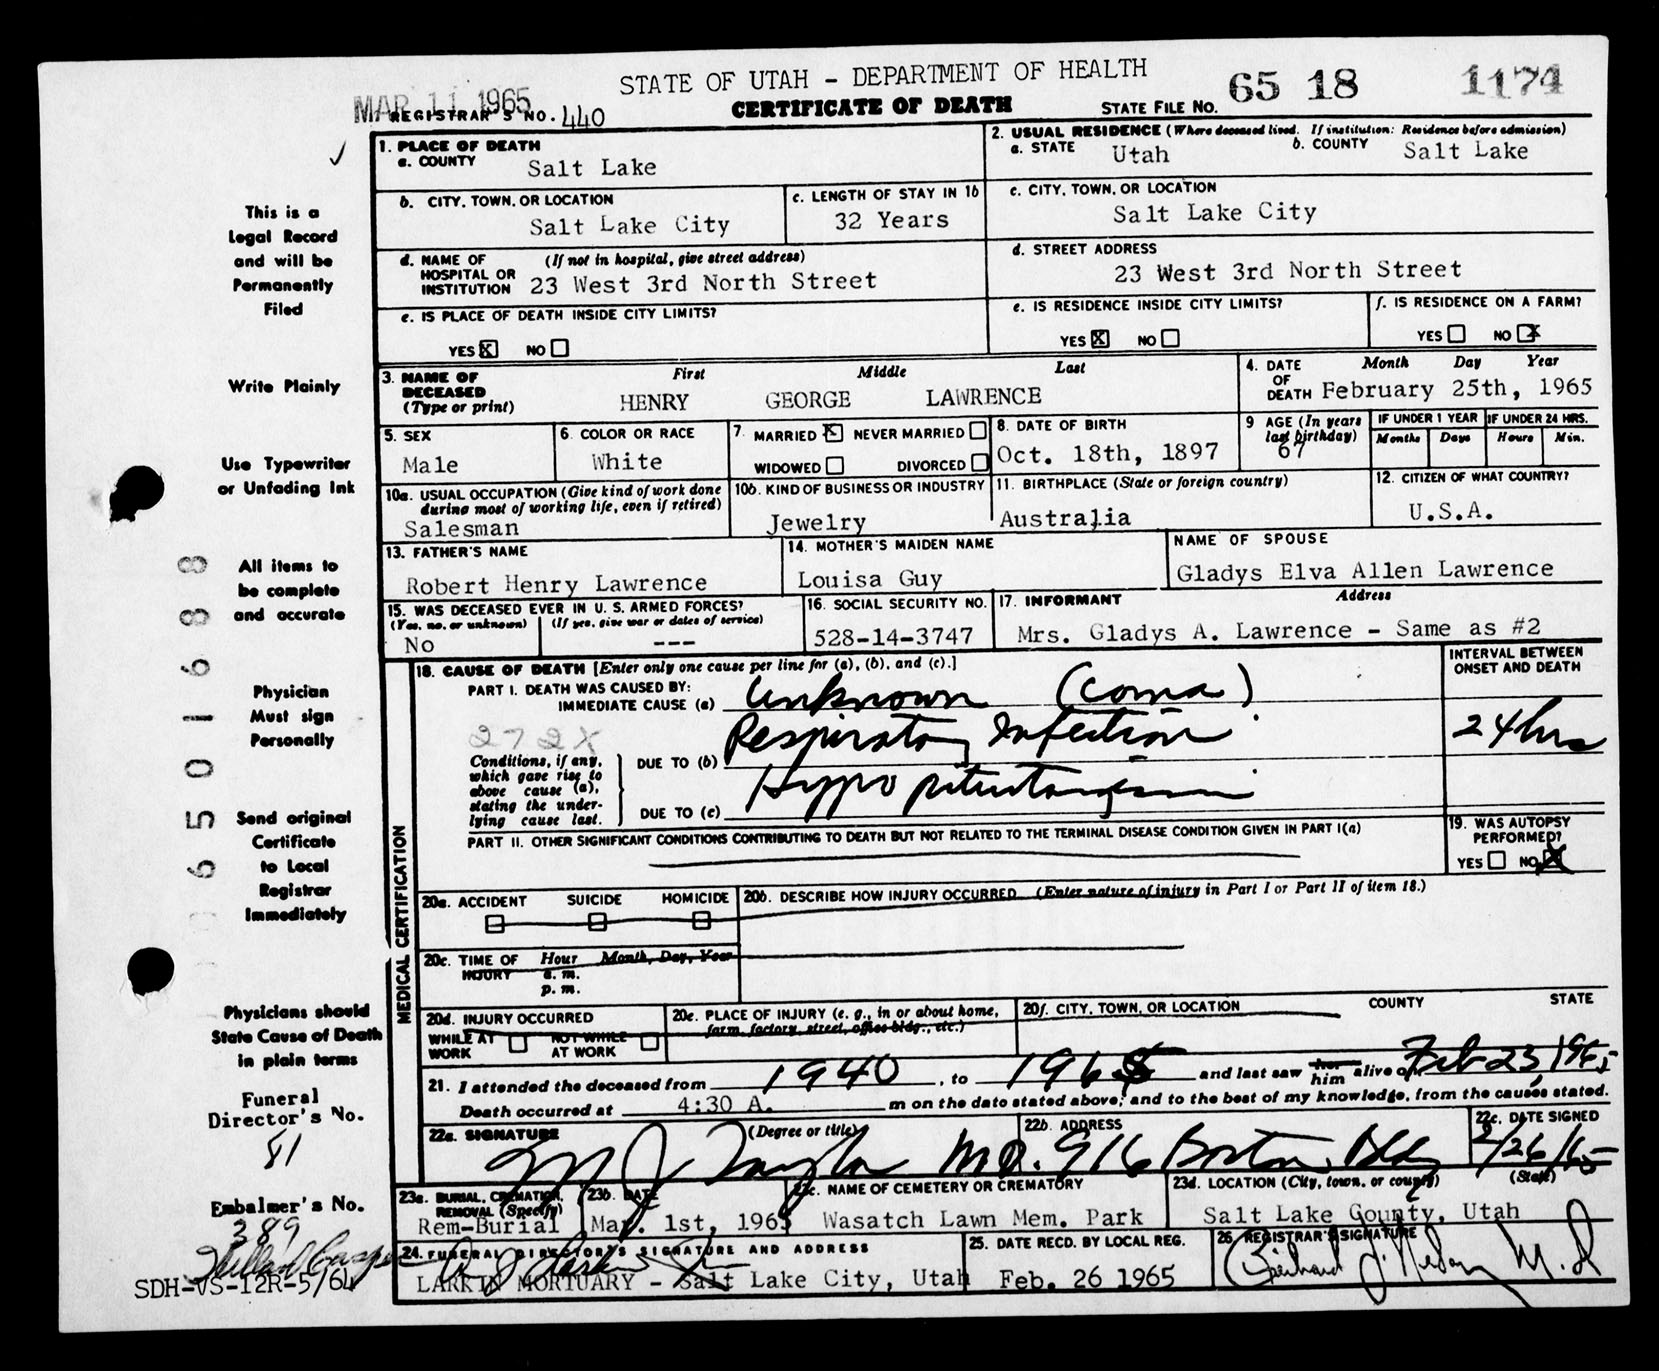 STATE OF UTAH - DEPARTMENT OF HEALTH
CERTIFICATE OF DEATH
MAR 11 1965
REGISTRAR'S NO. 440
STATE FILE NO. 65 18 1174
1. PLACE OF DEATH
a. COUNTY Salt Lake
2. USUAL RESIDENCE (Where deceased lived. If institution: Residence before admission)
a. STATE Utah b. COUNTY Salt Lake
b. CITY, TOWN, OR LOCATION Salt Lake City
c. LENGTH OF STAY IN 1b 32 Years
c. CITY, TOWN, OR LOCATION Salt Lake City
d. NAME OF HOSPITAL OR INSTITUTION (If not in hospital, give street address) 23 West 3rd North Street
d. STREET ADDRESS 23 West 3rd North Street
e. IS PLACE OF DEATH INSIDE CITY LIMITS?
YES X NO
e. IS RESIDENCE INSIDE CITY LIMITS?
YES X NO
f. IS RESIDENCE ON A FARM?
YES NO X
3. NAME OF DECEASED (Type or print)
First Middle Last
HENRY GEORGE LAWRENCE
4. DATE OF DEATH Month Day Year
February 25th, 1965
5. SEX Male
6. COLOR OR RACE White
7. MARRIED X NEVER MARRIED
WIDOWED DIVORCED
8. DATE OF BIRTH Oct. 18th, 1897
9 AGE (In years last birthday) 67
IF UNDER 1 YEAR Months Days
IF UNDER 24 HRS. Hours Min.
10a. USUAL OCCUPATION (Give kind of work done during most of working life, even if retired)
Salesman
10b. KIND OF BUSINESS OR INDUSTRY
Jewelry
11. BIRTHPLACE (State or foreign country)
Australia
12. CITIZEN OF WHAT COUNTRY?
U.S.A.
13. FATHER'S NAME
Robert Henry Lawrence
14. MOTHER'S MAIDEN NAME
Louisa Guy
NAME OF SPOUSE
Gladys Elva Allen Lawrence
15. WAS DECEASED EVER IN U. S. ARMED FORCES?
(Yes, no, or unknown) (If yes, give war or dates of service)
No ---
16. SOCIAL SECURITY NO.
528-14-3747
17. INFORMANT Address
Mrs. Gladys A. Lawrence - Same as #2
MEDICAL CERTIFICATION
18. CAUSE OF DEATH [Enter only one cause per line for (a), (b), and (c).]
INTERVAL BETWEEN ONSET AND DEATH
PART I. DEATH WAS CAUSED BY:
IMMEDIATE CAUSE (a) Unknown (coma)
272X
Conditions, if any, which gave rise to above cause (a), stating the underlying cause last.
DUE TO (b) Respiratory Infection 24 hrs
DUE TO (c) Hypopituitarism
PART II. OTHER SIGNIFICANT CONDITIONS CONTRIBUTING TO DEATH BUT NOT RELATED TO THE TERMINAL DISEASE CONDITION GIVEN IN PART I(a)
19. WAS AUTOPSY PERFORMED?
YES NO X
20a. ACCIDENT SUICIDE HOMICIDE
20b. DESCRIBE HOW INJURY OCCURRED (Enter nature of injury in Part I or Part II of item 18.)
20c. TIME OF INJURY Hour Month, Day, Year
a. m.
p. m.
20d. INJURY OCCURRED
WHILE AT WORK NOT WHILE AT WORK
20e. PLACE OF INJURY (e. g., in or about home, farm, factory, street, office bldg., etc.)
20f. CITY, TOWN, OR LOCATION COUNTY STATE
21. I attended the deceased from 1940, to 1965 and last saw her him alive on Feb 23, 1965
Death occurred at 4:30 A. m on the date stated above; and to the best of my knowledge, from the causes stated.
22a. SIGNATURE (Degree or title)
M J Taylor MD.
22b. ADDRESS
916 Boston Bldg
22c. DATE SIGNED
2/26/65
23a. BURIAL, CREMATION, REMOVAL (Specify)
Rem-Burial
23b. DATE
Mar. 1st, 1965
23c. NAME OF CEMETERY OR CREMATORY
Wasatch Lawn Mem. Park
23d. LOCATION (City, town, or county) (State)
Salt Lake County, Utah
24. FUNERAL DIRECTOR'S SIGNATURE AND ADDRESS
LARKIN MORTUARY - Salt Lake City, Utah
25. DATE RECD. BY LOCAL REG.
Feb. 26 1965
26. REGISTRAR'S SIGNATURE
M.D
This is a
Legal Record
and will be
Permanently
Filed
Write Plainly
Use Typewriter
or Unfading Ink
All items to
be complete
and accurate
Physician
Must sign
Personally
Send original
Certificate
to Local
Registrar
Immediately
Physicians should
State Cause of Death
in plain terms
Funeral
Director's No.
81
Embalmer's No.
389
SDH-VS-12R-5/64
6 5 0 1 6 8 8